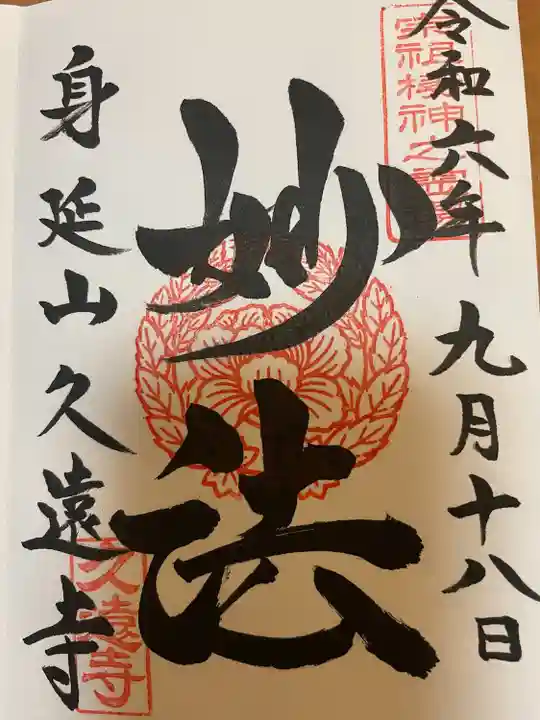 令和六年九月十八日
宗祖棲神之霊山
妙法
身延山久遠寺
久遠寺